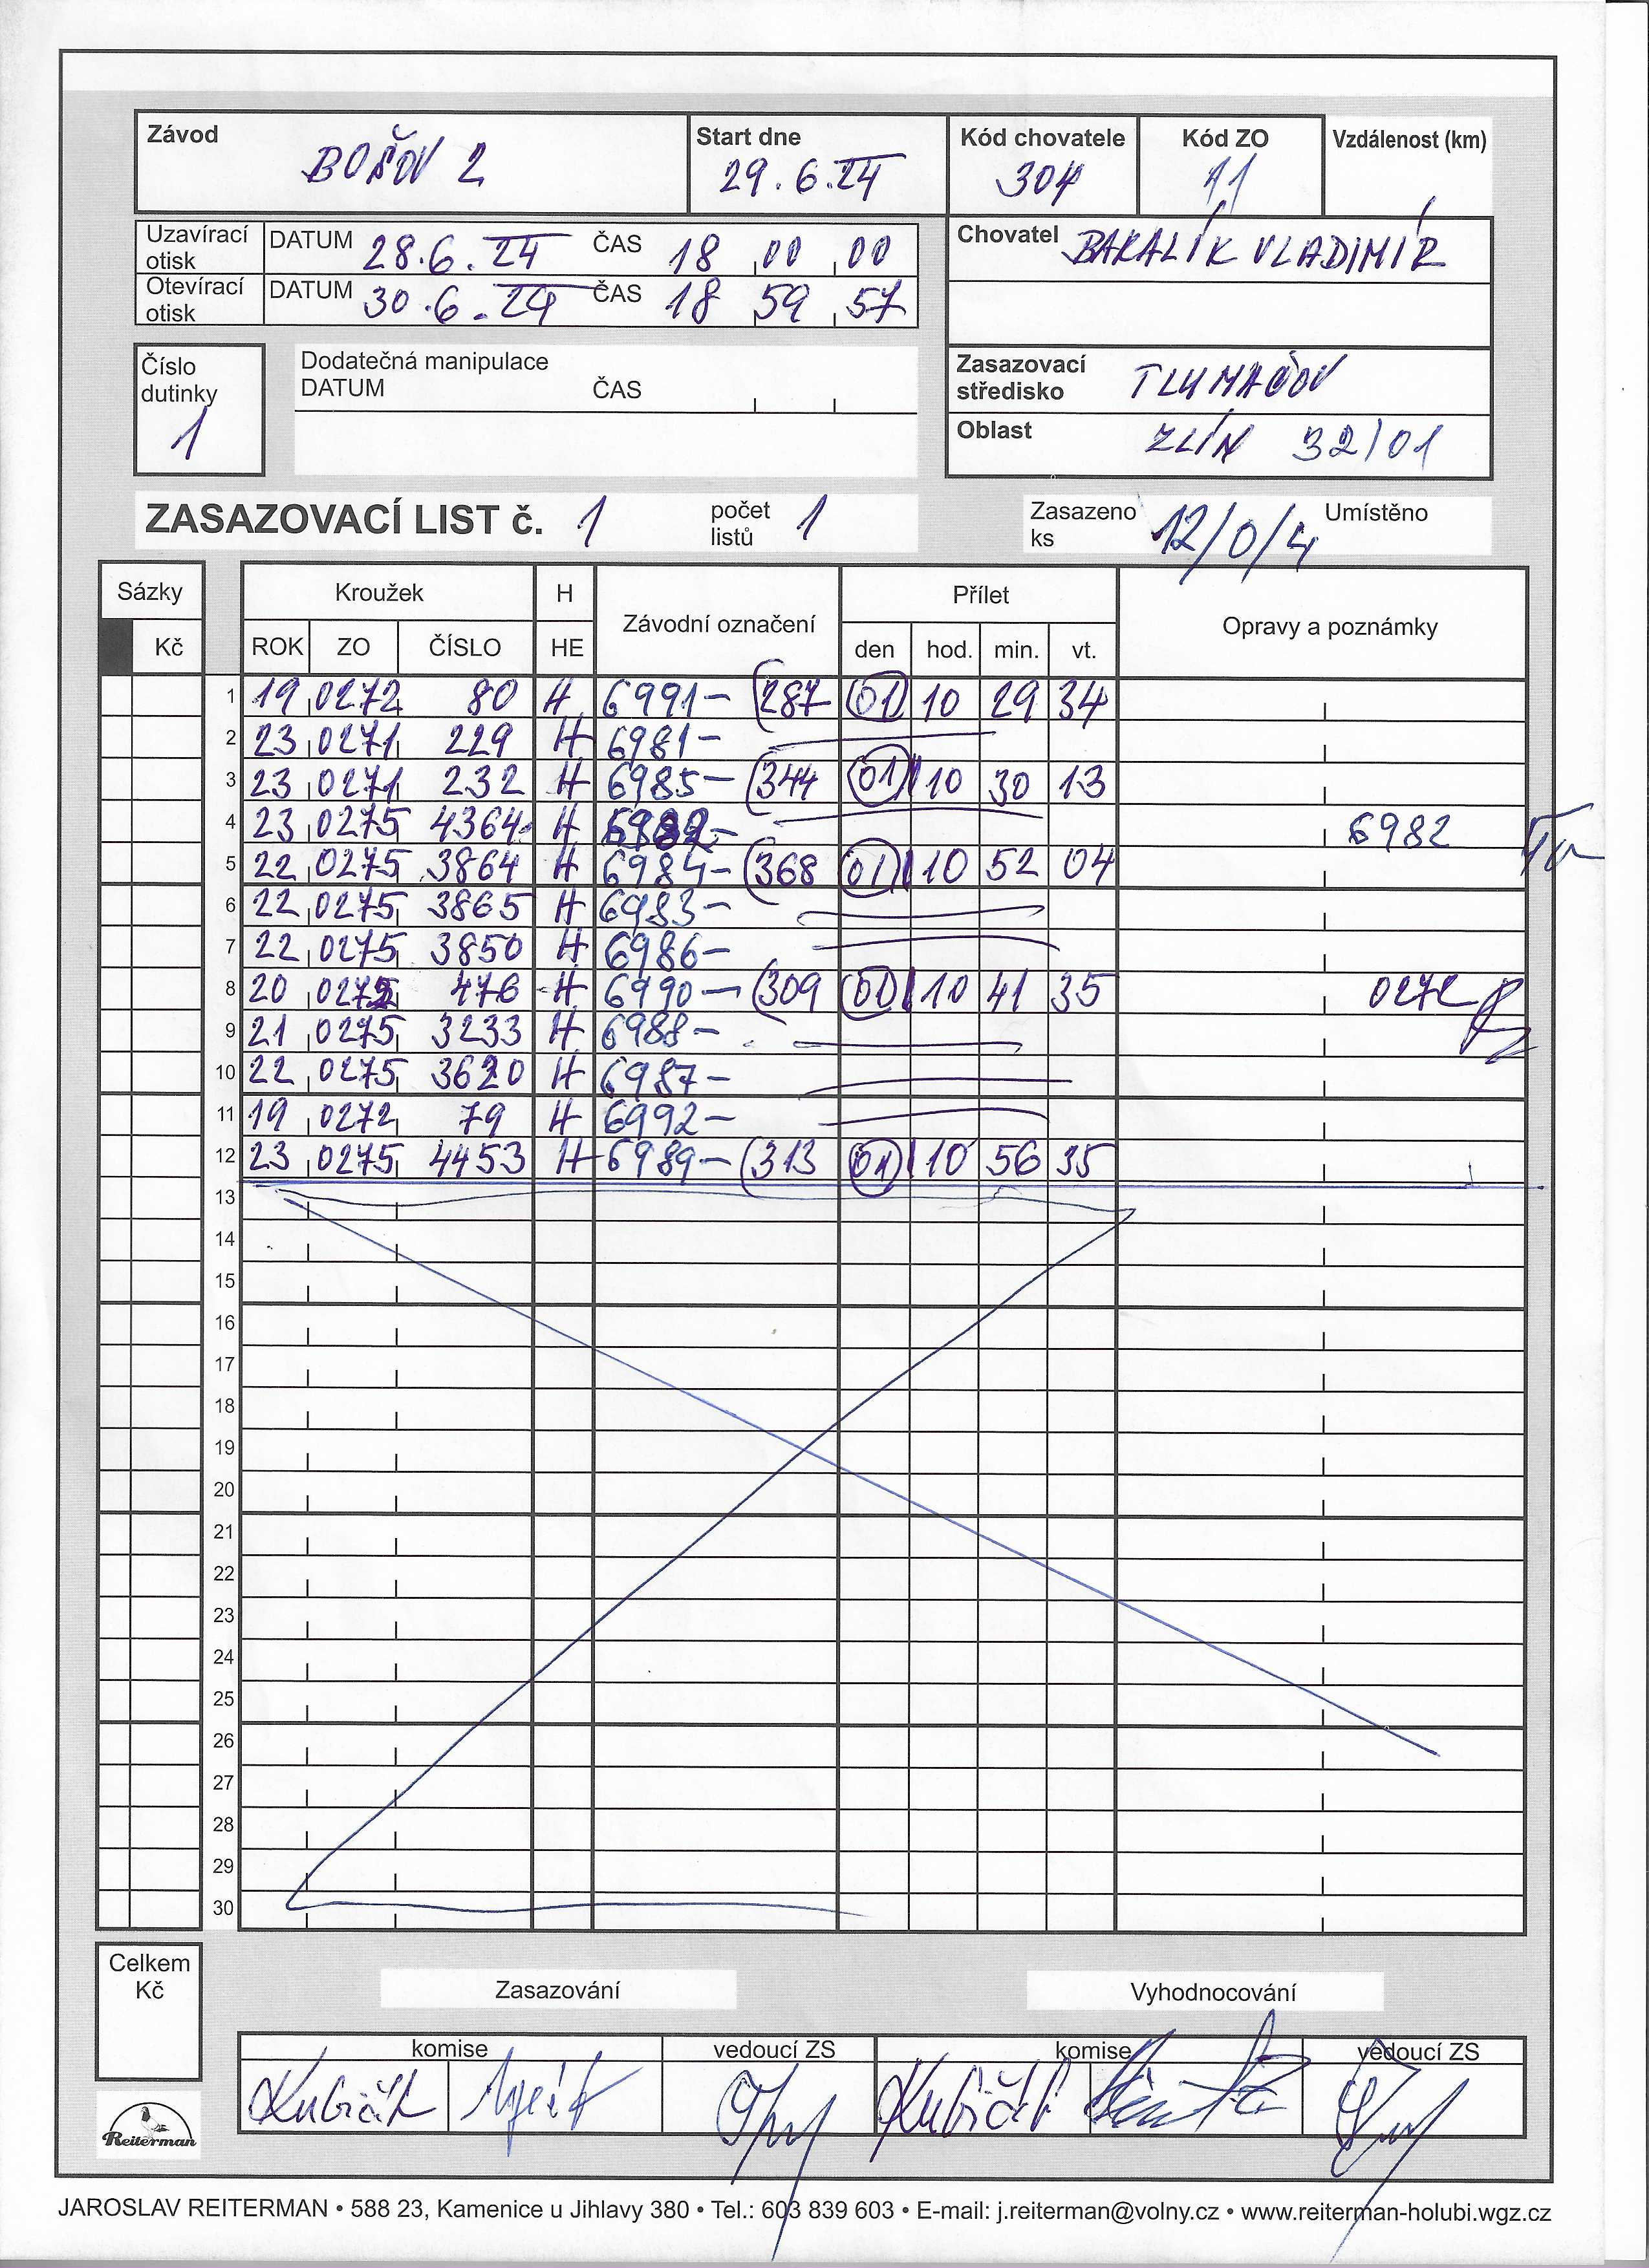 Závod BOŠOV 2 Start dne 29.6.24 Kód chovatele 304 Kód ZO 11 Vzdálenost (km)
Uzavírací otisk DATUM 28.6.24 ČAS 18 00 00
Otevírací otisk DATUM 30.6.24 ČAS 18 59 57
Chovatel BAKALÍK VLADIMÍR
Číslo dutinky 1
Dodatečná manipulace
DATUM ČAS
Zasazovací středisko TLUMAČOV
Oblast ZLÍN 32/01
ZASAZOVACÍ LIST č. 1 počet listů 1 Zasazeno ks 12/0/4 Umístěno
Sázky Kroužek H Závodní označení Přílet Opravy a poznámky
Kč ROK ZO ČÍSLO HE den hod. min. vt.
1 19 0272 80 H 6991- (287 01 10 29 34
2 23 0271 229 H 6981-
3 23 0271 232 H 6985- (344 01 10 30 13
4 23 0275 4364 H 6982- 6982
5 22 0275 3864 H 6984- (368 01 10 52 04
6 22 0275 3865 H 6983-
7 22 0275 3850 H 6986-
8 20 0272 476 H 6990- (309 01 10 41 35 0272
9 21 0275 3233 H 6988-
10 22 0275 3620 H 6987-
11 19 0272 79 H 6992-
12 23 0275 4453 H 6989- (313 01 10 56 35
13
14
15
16
17
18
19
20
21
22
23
24
25
26
27
28
29
30
Celkem Kč
Zasazování Vyhodnocování
komise vedoucí ZS komise vedoucí ZS
Kubičák Kubičák
Reiterman
JAROSLAV REITERMAN • 588 23, Kamenice u Jihlavy 380 • Tel.: 603 839 603 • E-mail: j.reiterman@volny.cz • www.reiterman-holubi.wgz.cz